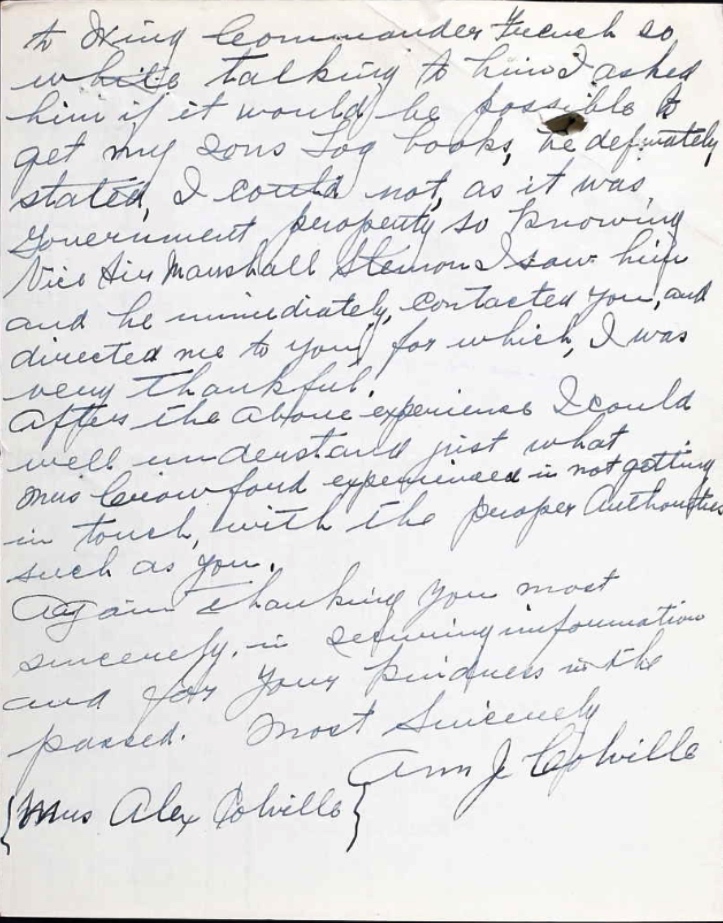 to Wing Commander French so
while talking to him I asked
him if it would be possible to
get my sons Log books, he definately
stated, I could not, as it was
Government property so knowing
Vice Air Marshall I saw him
and he immediately, contacted you, and
directed me to you, for which, I was
very thankful.
After the above experience I could
well understand just what
Mrs Crawford experienced in not getting
in touch, with the proper Authorities
such as you.
Again thanking you most
sincerely, in securing information
and for your kindness in the
passed. Most Sincerely
Ann J Colville
{Mrs Alex Colville}